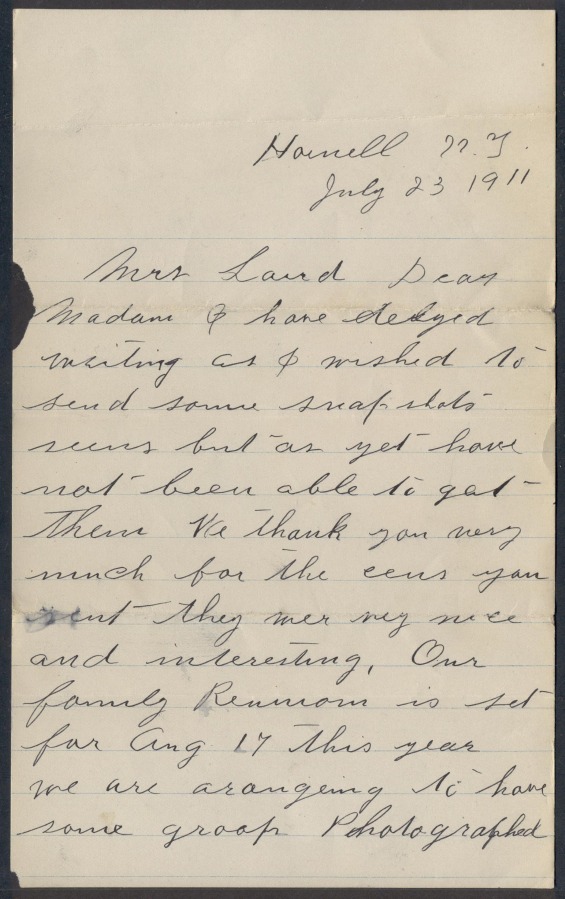 Hornell N.Y.
July 23 1911
Mrs Laird Dear
Madam I have delyed
writing as I wished to
send some snapshots
seens but as yet have
not been able to get
them We thank you very
much for the cens you
sent they wer very nice
and interesting, Our
family Reunion is set
for Aug 17 this year
we are arangeing to have
some groop Photographed